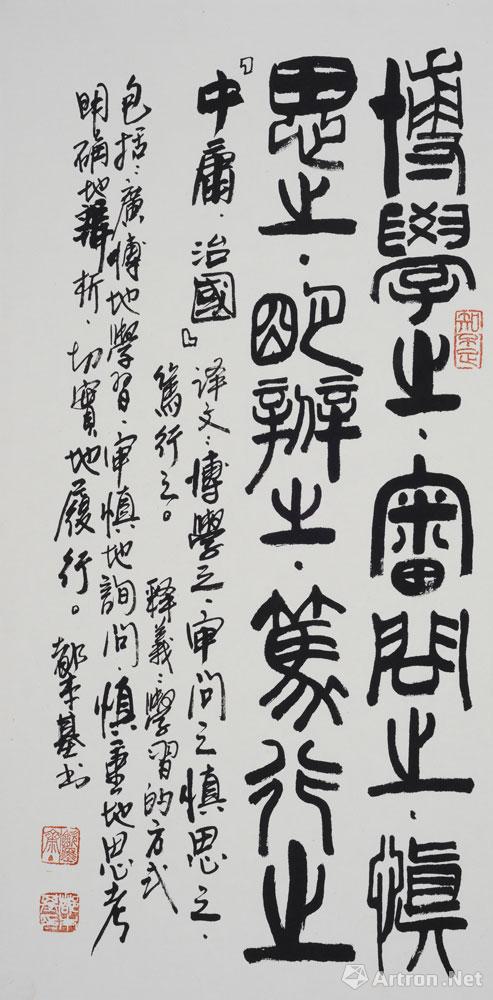 博學之、審問之、慎
思之、明辨之、篤行之
『中庸·治國』
译文：博學之、审问之慎思之、
篤行之。
释義：學習的方式
包括：廣博地學習、审慎地詢问、慎重地思考
明确地辨析、切實地履行。
Artron.Net